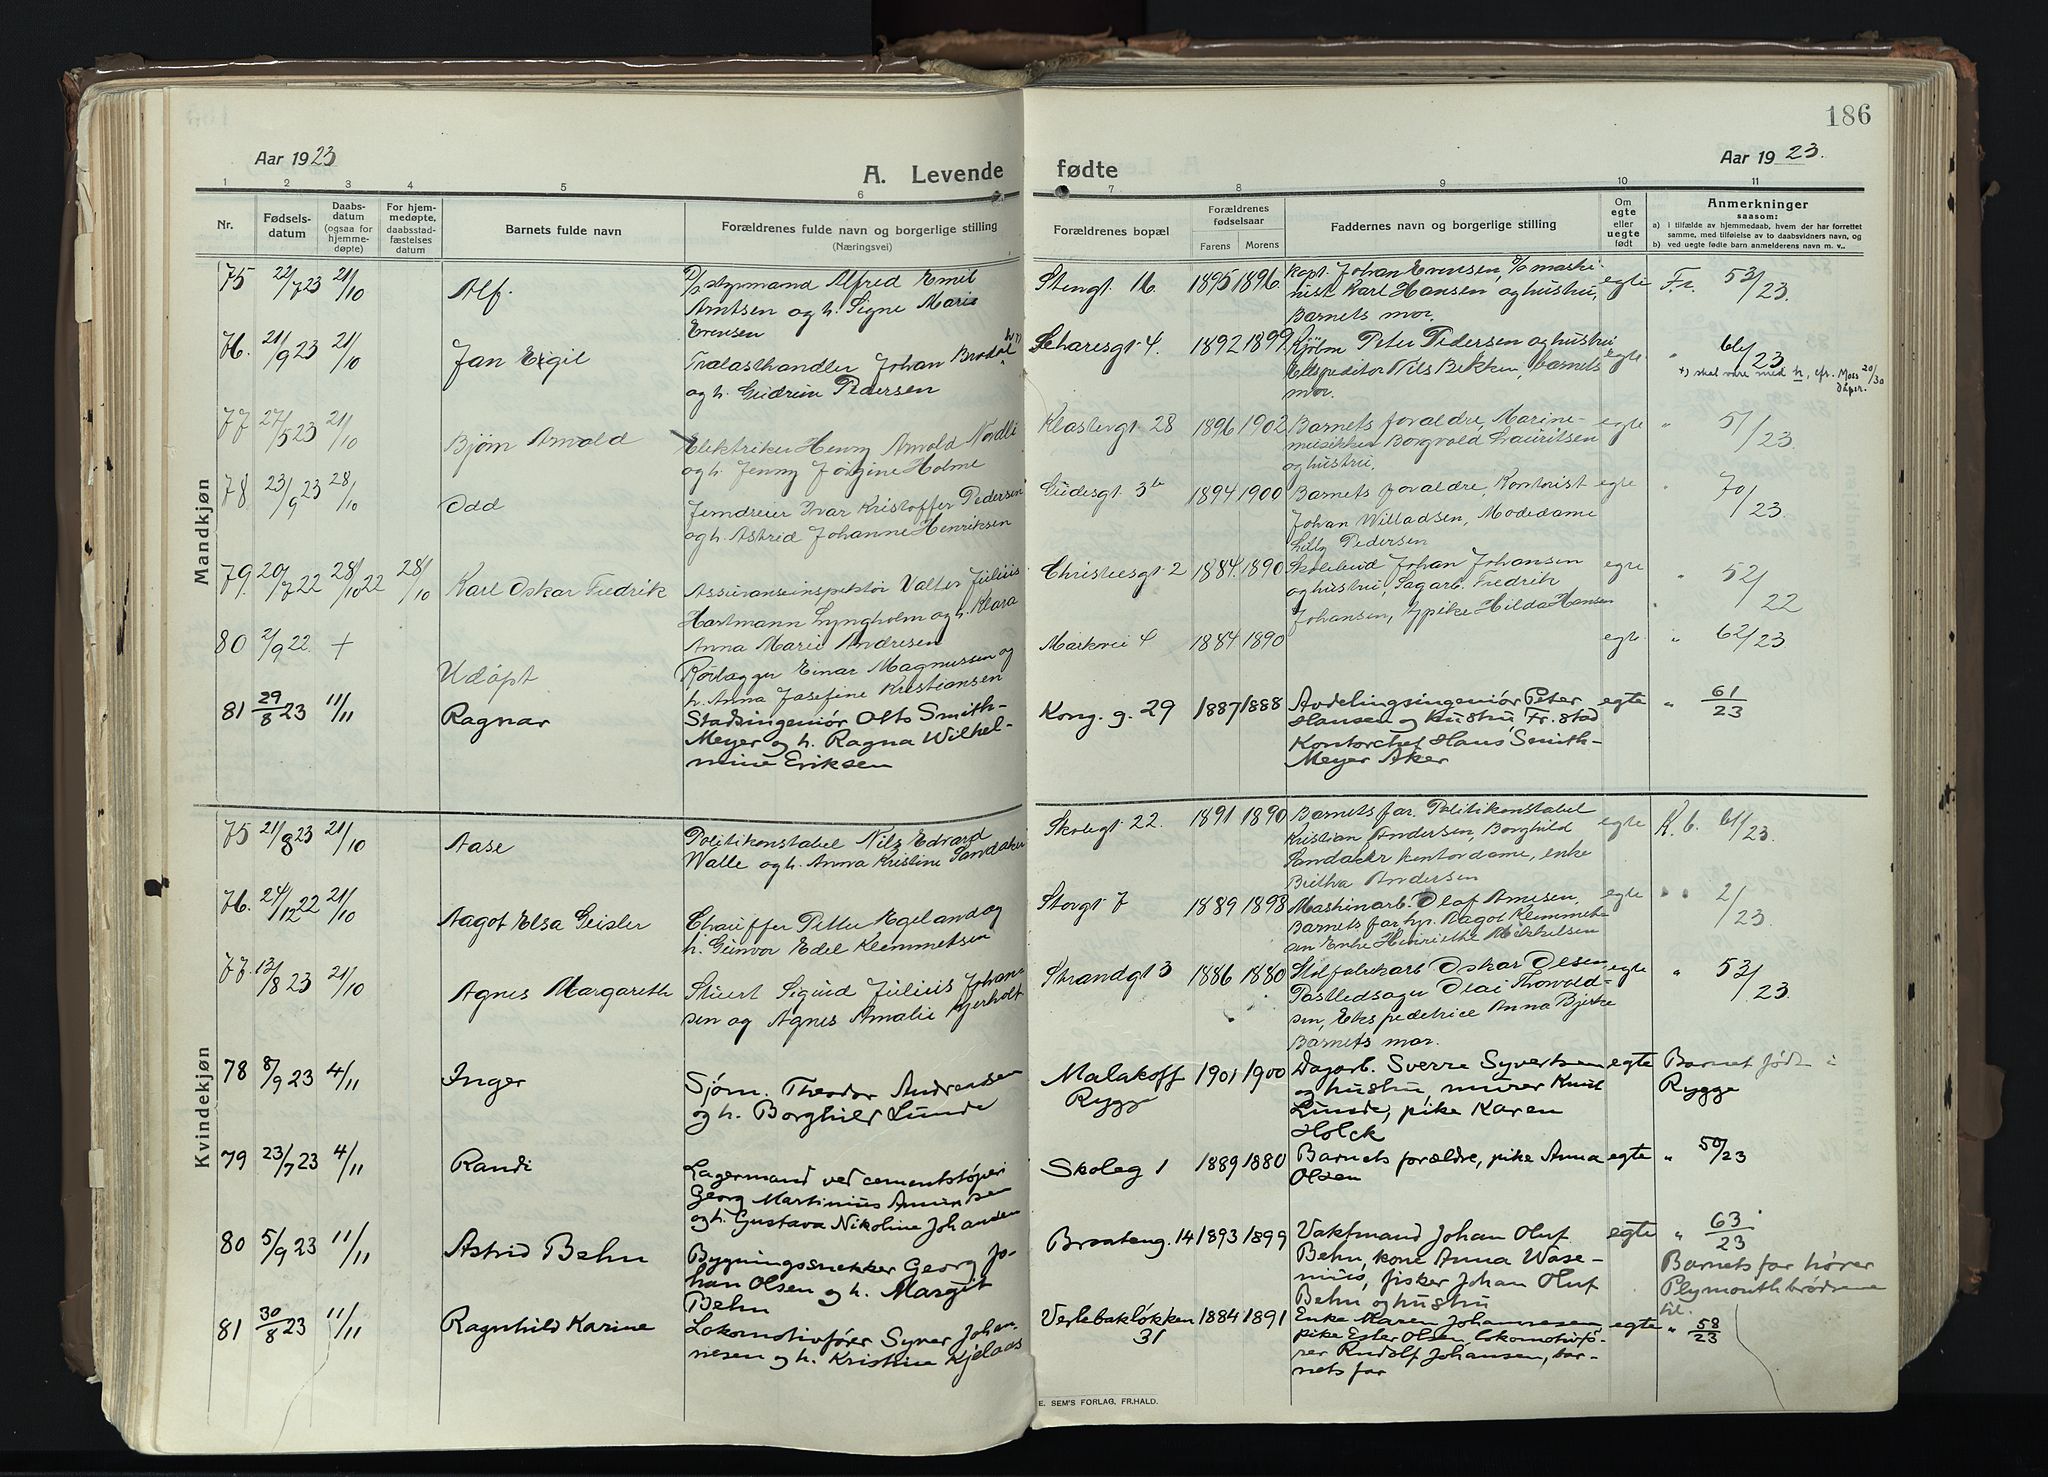 186
Aar 1923
A. Levende fødte
Aar 1923.
1 2 3 4 5 6 7 8 9 10 11
Nr.
Fødsels-
datum
Daabs-
datum
(ogsaa for
hjemme-
døpte)
For hjem-
medøpte,
daabsstad-
fæstelses
datum
Barnets fulde navn
Forældrenes fulde navn og borgerlige stilling
(Næringsvei)
Forældrenes bopæl
Forældrenes
fødselsaar
Farens Morens
Faddernes navn og borgerlige stilling
Om
egte
eller
uegte
født
Anmerkninger
saasom:
a) i tilfælde av hjemmedaab, hvem der har forrettet
samme, med tilføielse av to daabsvidners navn, og
b) ved uegte fødte barn anmelderens navn m. v..
Mandkjøn
75 22/7 23 21/10 Alf. Stengt. 16. 1895 1896. egte Fr. 53/23.
styrmand Alfred Emil
Arntsen og h. Signe Marie
Evensen
Kapt. Johan Evensen, maski-
nist Karl Hansen og hustru,
Barnets mor.
76. 21/9 23 21/10 Jan Egil 4. 1892 1899. egte " 66/23
Trælasthandler Johan Brodal
og h. Gudrun Pedersen
Kjøbm Peter Pedersen og hustru
Ekspeditør Nils Bekken, barnets
mor.
+) skal være med h, cfr. Moss 20/30
dåpsr.
77 27/5 23 21/10 Bjørn Arnold Klostergt 28 1896 1902 egte " 51/23.
Elektriker Henry Arnold Nordli
og h. Jenny Jorgine Holme
Barnets forældre, Marine-
musikker Borgvald Lauritsen
og hustru.
78 23/9 23 28/10 Odd Gudesgt. 3b 1894 1900 egte " 70/23.
Jerndreier Ivar Kristoffer Pedersen
og h. Astrid Johanne Henriksen
Barnets forældre, Kontorist
Johan Willadsen, Modedame
Lilly Pedersen
79. 20/7 22 28/10 22 28/10 Karl Oskar Fredrik Christiesgt 2 1884. 1890 egte " 52/22
Assuranseinspektør Valter Julius
Hartmann Lyngholm og h. Klara
Anna Marie Andresen
Skolebud Johan Johansen
og hustru, Sagarb. Fredrik
Johansen, pike Hilda Hansen
80 2/9 22. + Udøpt Markvei 4 1884 1890 egte " 62/23
Rørlægger Einar Magnussen og
h. Anna Josefine Kristiansen
81 29/8 23 11/11 Ragnar Kong. g. 29 1887 1888 egte " 61/23
Stadsingeniør Olts Smith-
Meyer og h. Ragna Wilhel-
mine Eriksen
Avdelingsingeniør Peter
Hansen og hustru, Fr.stad
Kontorchef Hans Smith-
Meyer Aker
Kvindekjøn
75 21/8 23 21/10 Aase Skolegt 22. 1891 1890 egte K. b. 61/23.
Politikonstabel Nils Edvard
Walle og h. Anna Kristine Sandaker
Barnets far. Politikonstabel
Kristian Andersen, Borghild
Sandaker kontordame, enke
Britha Andersen
76. 24/12 22 21/10 Aagot Elsa Geisler Storgt 7 1889 1898 egte " " 2/23.
Chauffer Petter Egeland og
h. Gunvor Edel Klemmetsen
Maskinarb. Olaf Arnesen,
Barnets far, Aagot Klemmet-
sen Enke Henriette Mikkelsen
77. 13/8 23 21/10 Agnes Margareth Strandgt 3 1886 1880 egte " 53/23.
Stuert Sigurd Julius Johan-
sen og Agnes Amalie Kjerholt
Oskar Olsen,
Olai Thorvald-
sen, Ekspeditrice Anna Bjerke
Barnets mor.
78 8/9 23 4/11 Inger Malakoff 1901 1900 egte Barnet født i
Rygge Rygge
Sjøm. Theodor Andreassen
og h. Borghild Lunde
Dagarb. Sverre Syvertsen
og hustru, murer Knut
Lunde, pike Karen
Holck
79 23/7 23 4/11 Randi Skoleg 1 1889 1880 egte " 50/23
Lagermand ved cementstøperi
Georg Martinius Amundsen
og h. Gustava Nikoline Johansen
Barnets forældre, pike Anna
Olsen
80 5/9 23 11/11 Astrid Behn Braateng. 14 1893 1899 egte " 63/23
Bygningssnekker Georg Jo-
han Olsen og h. Margit
Behn
Vaktmand Johan Oluf
Behn, kone Anna Wase-
nius, fisker Johan Oluf
Behn og hustru
Barnets far hører
Plymouthbrødrene
til.
81 30/8 23 11/11 Ragnhild Karine Verlebakløkken 1884 1891 egte " 58/23
31
Lokomotivfører Syver Johan-
nesen og h. Kristine Kjelaas
Enke Maren Johannesen
pike Ester Olsen, lokomotivfø-
rer Rudolf Johansen, bar-
nets far
E. SEM'S FORLAG, FR.HALD.